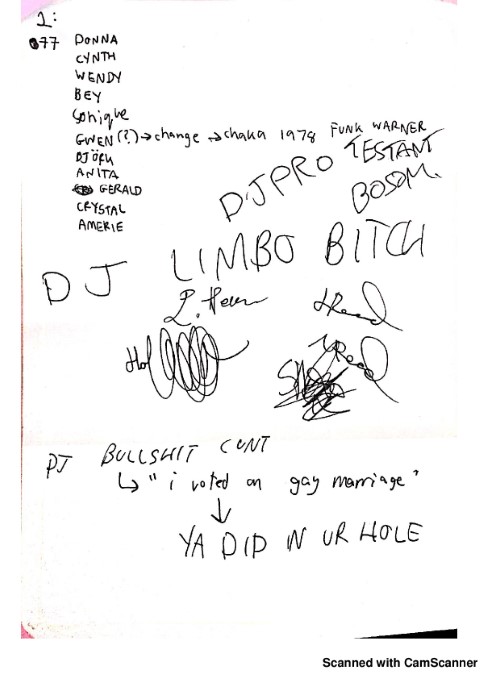 1:
077 DONNA
CYNTH
WENDY
BEY
Sonique
GWEN (?) → change → chaka 1978 FUNK WARNER
BJÖRK
ANITA
GERALD
CRYSTAL
AMERIE
DJ PRO TESTANT
BOSOM.
DJ LIMBO BITCH
DJ BULLSHIT CUNT
↳ "i voted on gay marriage"
↓
YA DID IN UR HOLE
Scanned with CamScanner